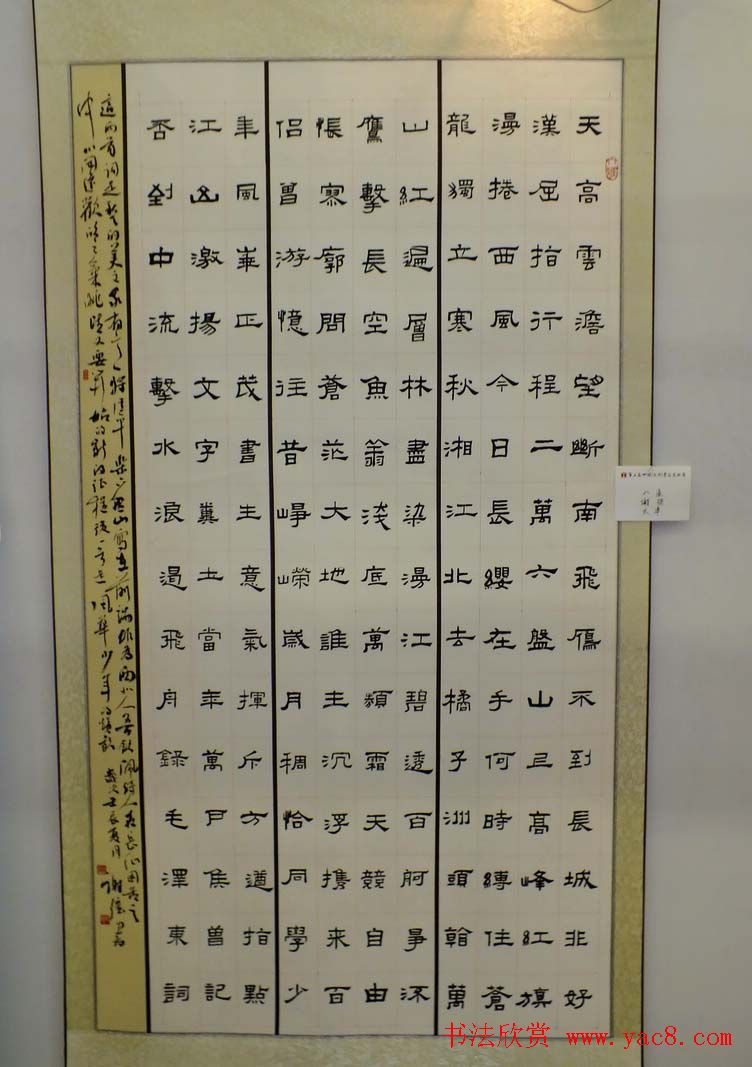 天高雲澹望斷南飛鴈不到長城非好
漢屈指行程二萬六盤山上高峰紅旗
漫捲西風今日長纓在手何時縛住蒼
龍獨立寒秋湘江北去橘子洲頭看萬
山紅遍層林盡染漫江碧透百舸爭流
鷹擊長空魚翁淺底萬類霜天競自由
悵寥廓問蒼茫大地誰主沉浮攜来百
侣曾游憶往昔崢嶸歲月稠恰同學少
年風華正茂書生意氣揮斥方遒指點
江山激揚文字糞土當年萬户侯曾記
否到中流擊水浪遏飛舟錄毛澤東詞
這兩首詞
歲次壬辰夏月
书法欣赏 www.yac8.com